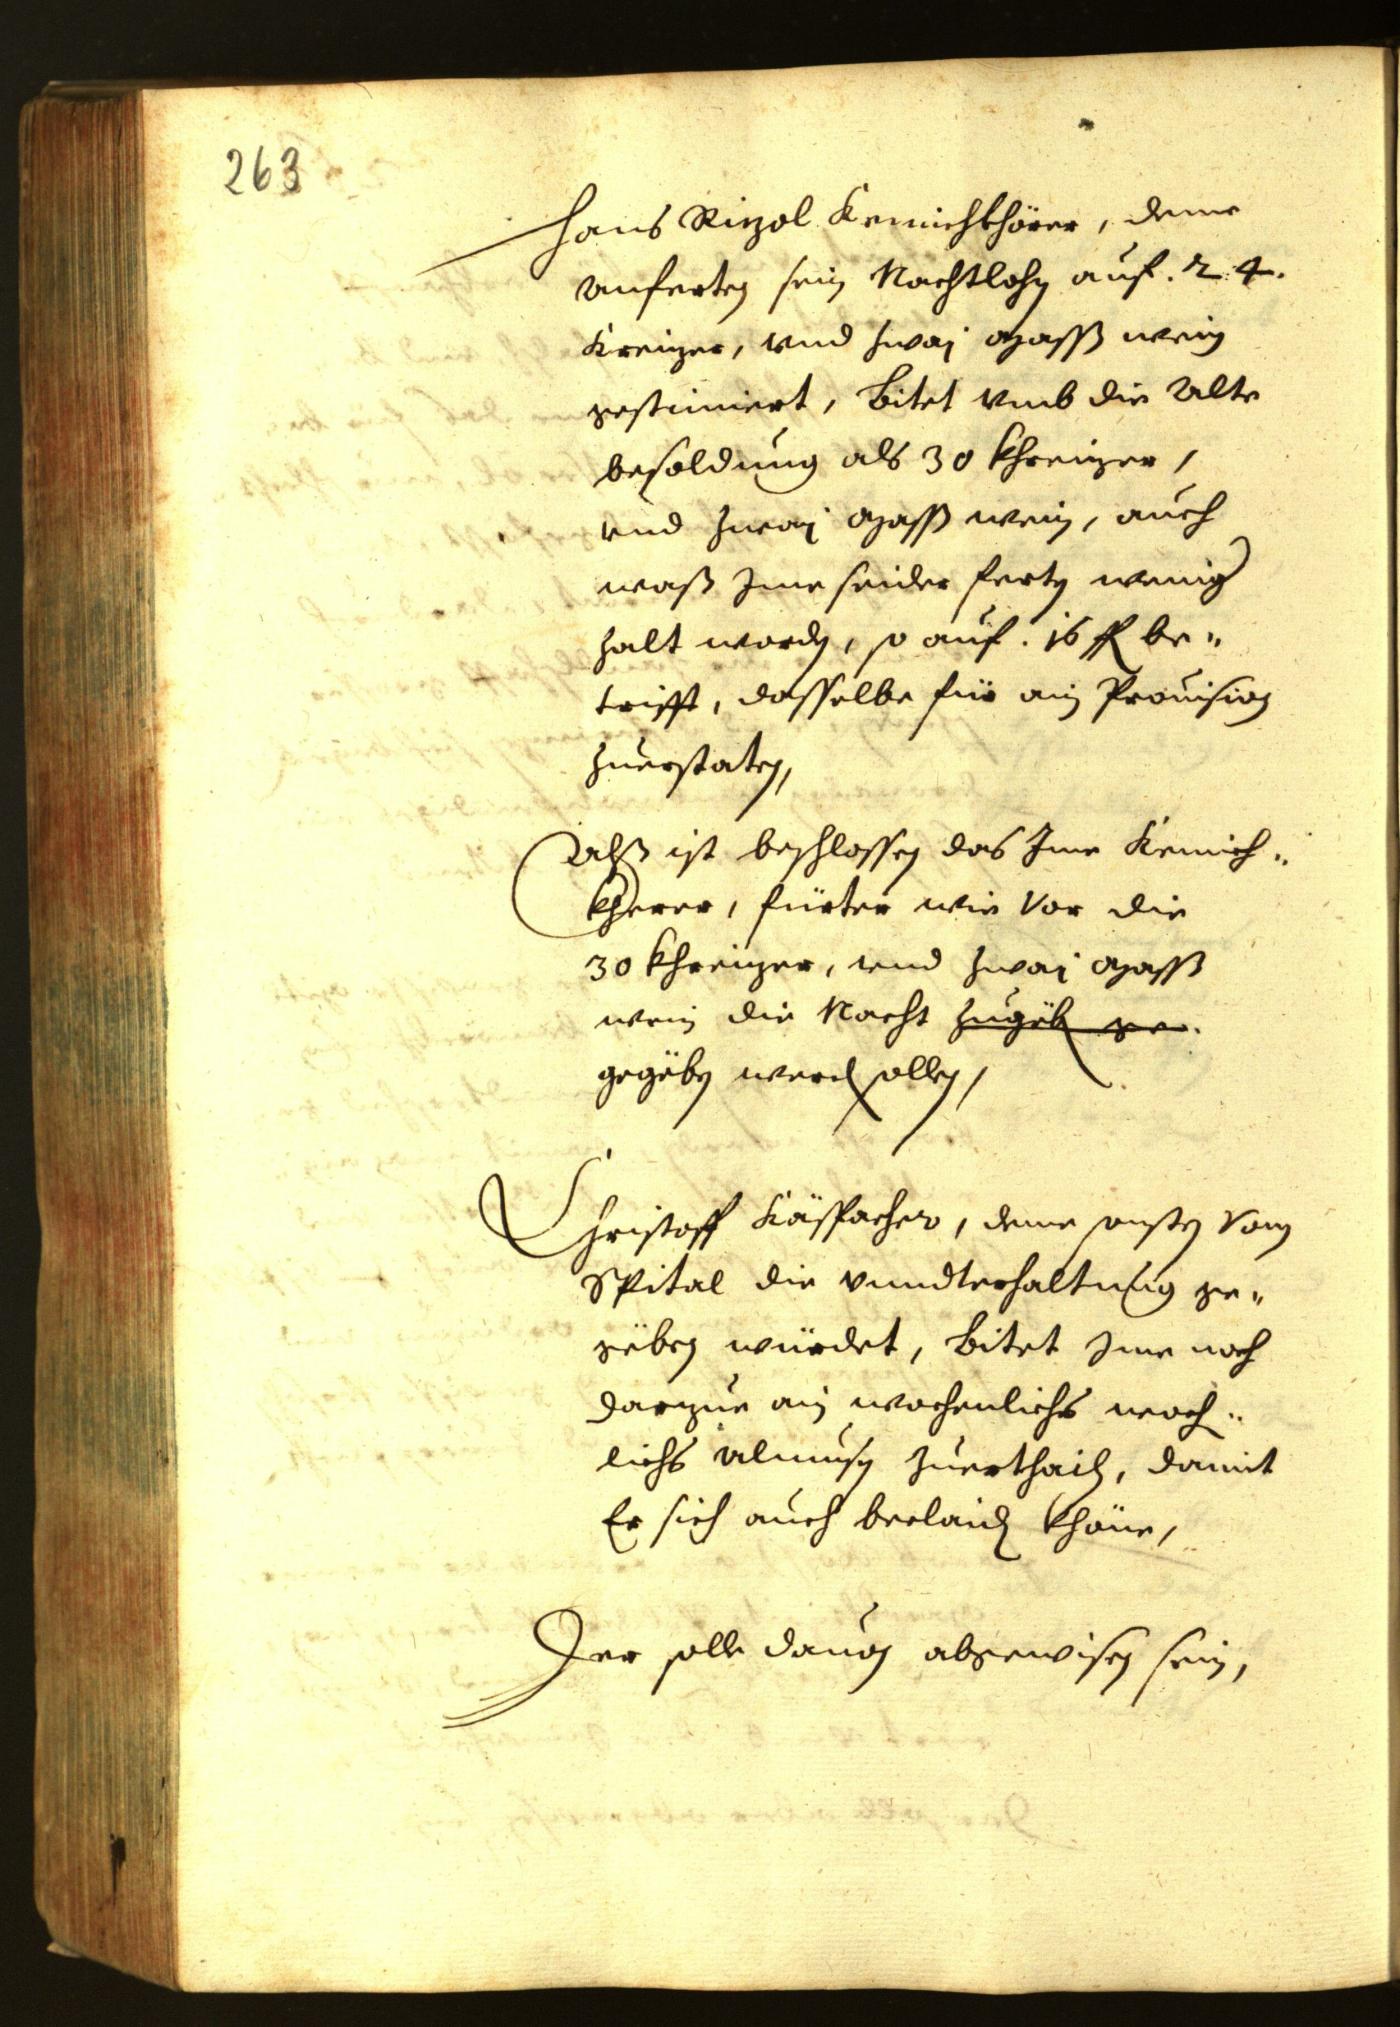 263
Hans Rizol Kemichkhörer, deme
vnferten sein Nachtlohn auf. 24.
Kreizer, vnd zwaj mass wein
gestimiert, bitet vmb die Alte
besoldung als 30 khreizer,
vnd zwaj mass wein, auch
waß Jme seider ferten wenig
halt worden, so auf. 16 fl be„
trifft, dasselbe für ain Prouision
zuerstaten,
Alß ist beschlossen das Jme Kemich„
kherer, fürter wie vor die
30 khreizer, vnd zwaj mass
wein die Nacht zugëben ge„
gegëben werden sollen,
Christoff Käspacher, deme sonsten vom
Spital die vnndterhaltnung ge„
gëben würdet, bitet Jme noch
darzue ain wochenlichs woch„
lichs Almusen zuerthailen, damit
Er sich auch beclaiden khöne,
Der solle dauon abgewisen sein,